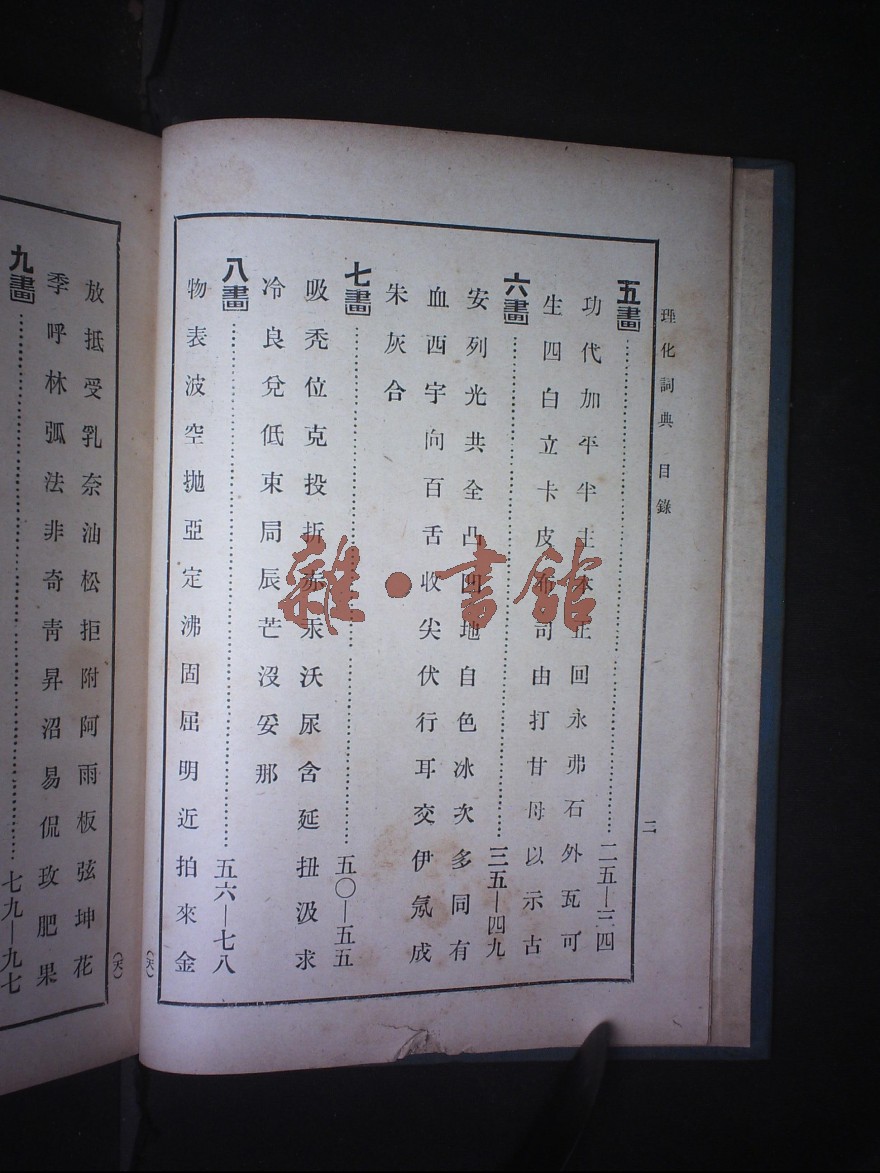 理化詞典 目錄
二
五畫……二五—三四
功代加平半主本正回永弗石外瓦可
生四白立卡皮布司由打甘母以示古
六畫……三五—四九
安列光共全凸凹地自色冰次多同有
血西宇向百舌收尖伏行耳交伊氖成
朱灰合
七畫……五〇—五五
吸禿位克投折赤汞沃尿含延扭汲求
冷良兌低束局辰芒沒妥那
八畫……五六—七八
物表波空拋亞定沸固屈明近拍來金
放抵受乳奈油松拒附阿雨板弦坤花
季呼林弧法非奇靑昇沼易侃玫肥果
九畫……七九—九七
雜·書館